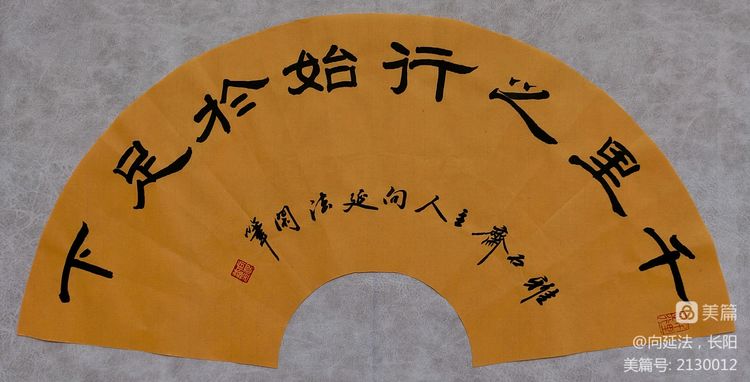 千里之行始於足下
雅石齋主人向延法閑筆
美篇
@向延法，长阳
美篇号: 2130012